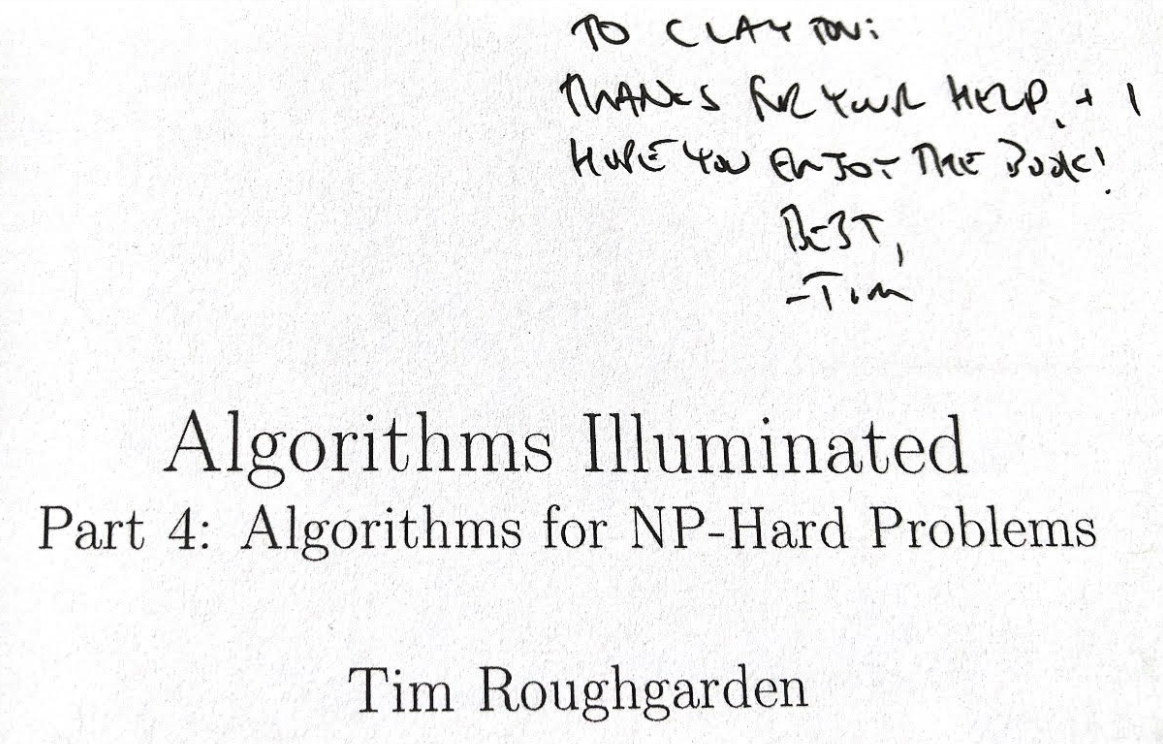 TO CLAYTON:
THANKS FOR YOUR HELP, + I
HOPE YOU ENJOY THE BOOK!
BEST,
-TIM
Algorithms Illuminated
Part 4: Algorithms for NP-Hard Problems
Tim Roughgarden